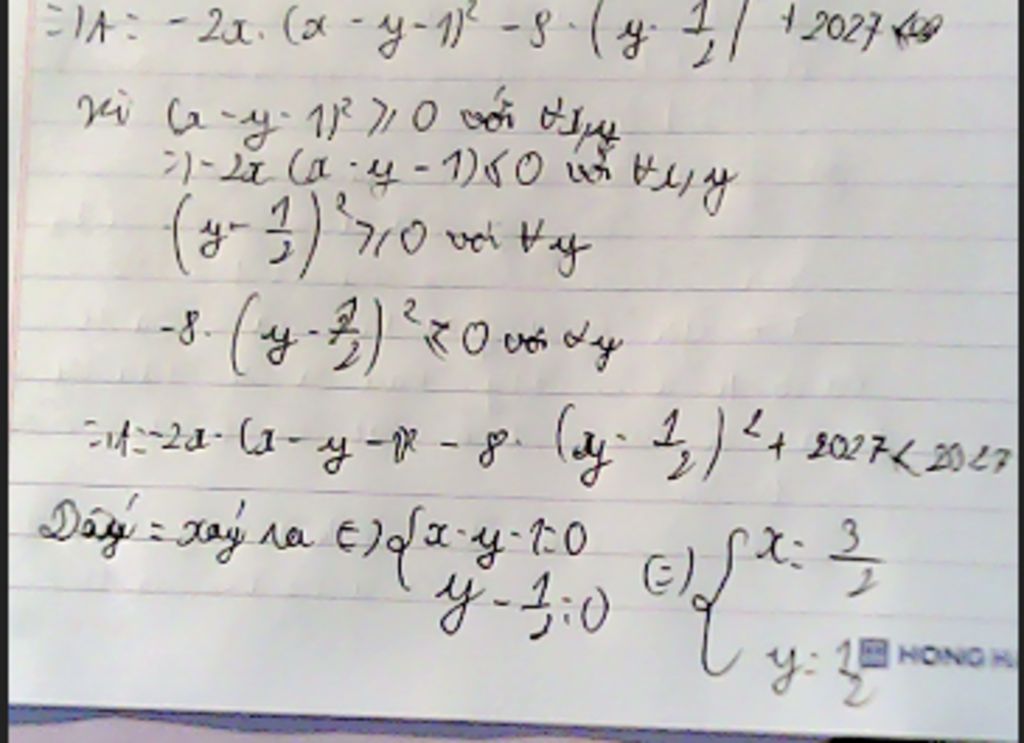 =) A = -2x. (x - y - 1)² - 8 · (y - 1/2) + 2027
Vì (x - y - 1)² ≥ 0 với ∀x,y
=) -2x (x - y - 1) ≤ 0 với ∀x,y
(y - 1/2)² ≥ 0 với ∀y
-8. (y - 1/2)² ≤ 0 với ∀y
=) A = -2x. (x - y - 1)² - 8. (y - 1/2)² + 2027 ≤ 2027
Dấy = xảy ra (=) { x - y - 1 = 0 (=) { x = 3/2
y - 1/2 = 0 y = 1/2
HONG H